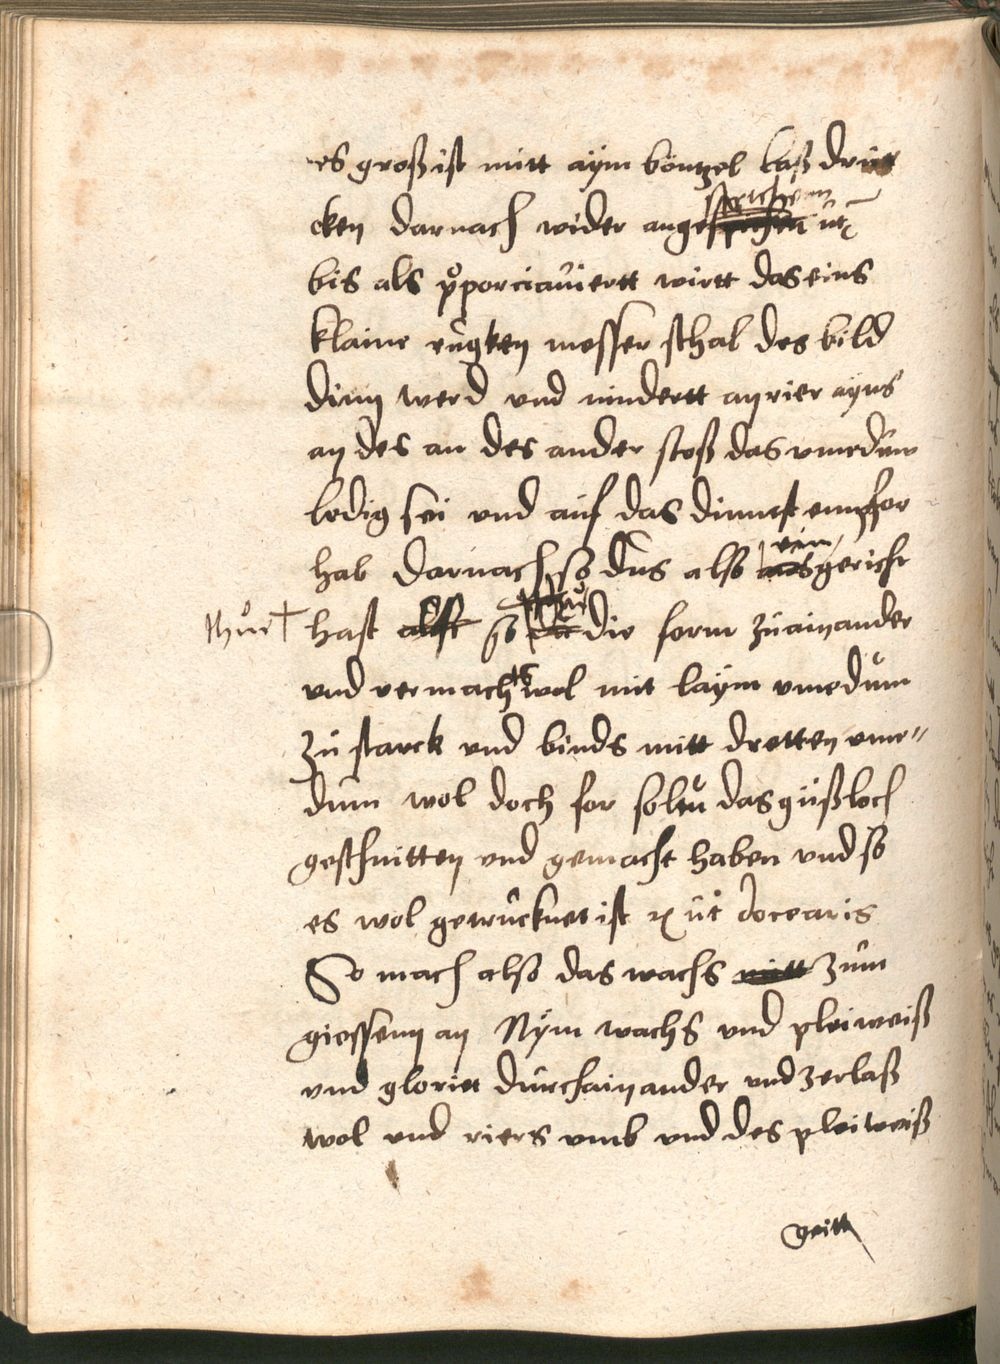 es groß ist mitt aÿm böntzel laß druck
cken darnach wider angestrichenn ut
bis als proporciauiertt wirtt das eins
klaine rugken messer schal des bild
dinn werd vnd nindertt an rier ayns
an des an des ander stoß das vmedum
ledig sei vnd auf das dinnest
hab darnach so dus also eingericht
thue hast so thue die form zuainander
vnd vermachs wol mit laÿm vmedum
zu starck vnd binds mitt dretten vme
dum wol doch for soltu das gußloch
geschnitten vnd gemacht haben vnd so
es wol getrucknet ist ut docearis
So mach also das wachs mitt zum
giessenn an Nÿm wachs vnd pleiweiß
vnd gloriet durchainander vnd zerlaß
wol vnd riers vmb vnd des pleiweiß